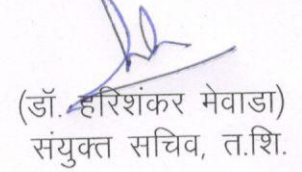 (डॉ. हरिशंकर मेवाडा)
संयुक्त सचिव, त.शि.